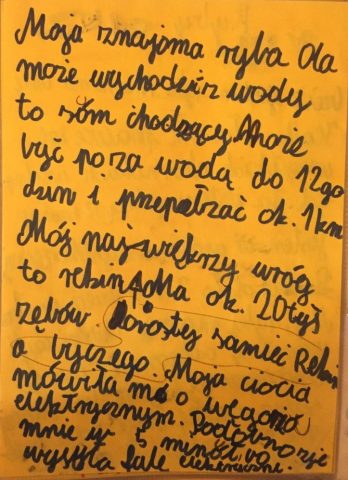 Moja znajoma ryba Ola
może wychodzić z wody
to sóm chodzący. Może
być poza wodą do 12 go
dzin i przepełzać ok. 1 km
Mój największy wróg
to rekin. Ma ok. 20 tyś
zębów. Dorosły samiec Reki
a byczego. Moja ciocia
mówiła mi o węgorzu
elektrycznym.
mnie w 5 minut bo
wysyła fale elektryczne.